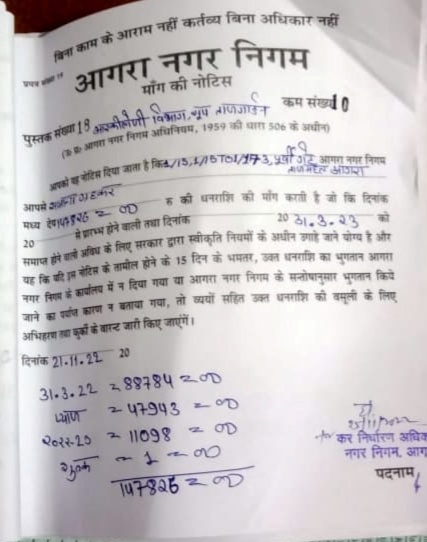 बिना काम के आराम नहीं कर्तव्य बिना अधिकार नहीं
आगरा नगर निगम
माँग की नोटिस
पुस्तक संख्या 18 क्रम संख्या 10
(उ० प्र० आगरा नगर निगम अधिनियम, 1959 की धारा 506 के अधीन)
आपको यह नोटिस दिया जाता है कि पूर्वी गेट आगरा नगर निगम
ताजमहल आगरा
आपसे रु की धनराशि की माँग करती है जो कि दिनांक
मध्य देय 147826 = 00 20 31.3.23 को
20 से प्रारम्भ होने वाली तथा दिनांक
समाप्त होने वाली अवधि के लिए सरकार द्वारा स्वीकृति नियमों के अधीन उगाहे जाने योग्य है और
यह कि यदि इस नोटिस के तामील होने के 15 दिन के भमतर, उक्त धनराशि का भुगतान आगरा
नगर निगम के कार्यालय में न दिया गया या आगरा नगर निगम के सन्तोषानुसार भुगतान किये
जाने का पर्याप्त कारण न बताया गया, तो व्ययों सहित उक्त धनराशि की वसूली के लिए
अभिहरण तथा कुर्की के वारन्ट जारी किए जाएंगें।
दिनांक 21.11.22 20
31.3.22 = 88784 = 00
ब्याज = 47943 = 00
= 11098 = 00
शुल्क = 1 = 00
147826 = 00
कर निर्धारण अधिक
नगर निगम, आग
पदनाम